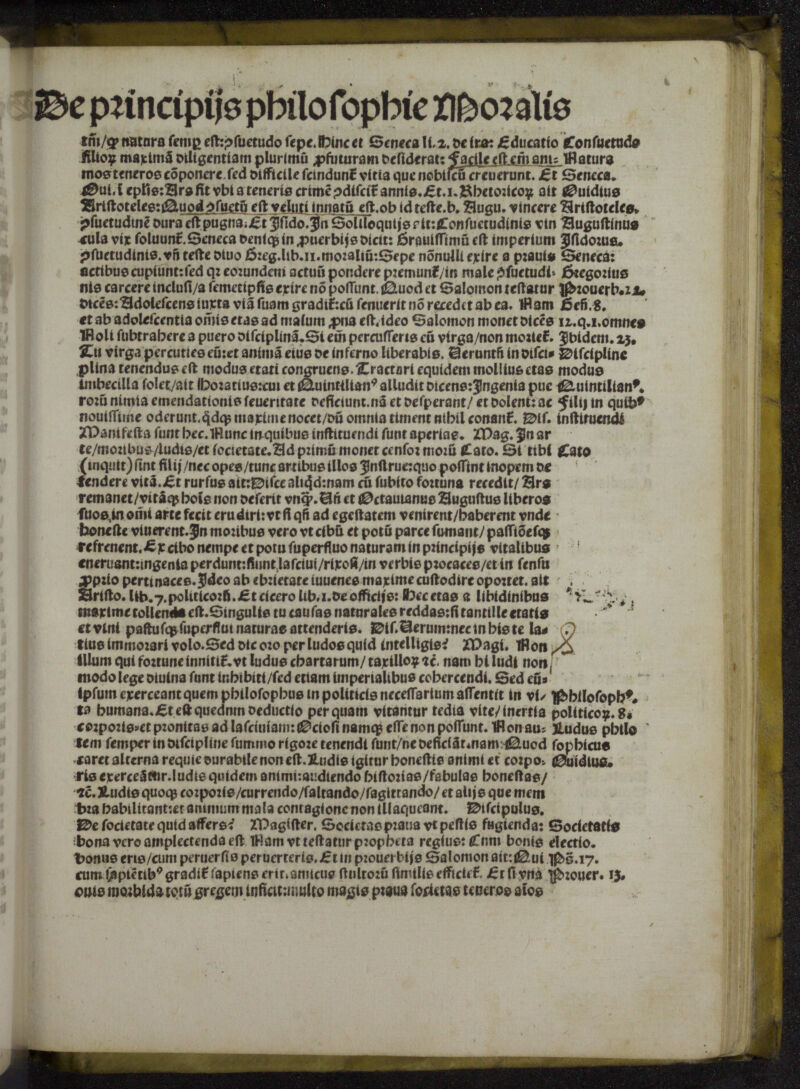 De principijs philosophie Moralis
tm̄/qꝫ natura semꝑ est:ꝯsuetudo sepe. Hinc et Seneca li.2. de ira: Educatio Consuetudo
filioꝝ maximā diligentiam plurimū ꝓfuturam desiderat: Facile est em̄ ani= Natura
mos teneros cōponere. sed difficile scindunt᷑ vitia que nobiscū creuerunt. Et Seneca.
Oui. ī ep̄lis: Ars fit vbi a teneris crimē ꝯdiscit᷑ annis. Et.1. Rhetoricoꝝ ait Ouidius
Aristoteles: Quod ꝯsuetū est veluti innatū est. ob id teste.b. Augu. vincere Aristoteles.
ꝯsuetudinē dura est pugna. Et Isido. In Soliloquijs ait: Consuetudinis vin Augustinus
cula vix soluunt᷑. Seneca deniqꝫ in ꝓuerbijs dicit: Grauissimū est imperium Isidorus.
ꝯsuetudinis. vn̄ teste diuo Greg.lib.11.moraliū: Sepe nōnulli exire a prauis Seneca:
actibus cupiunt: sed qꝛ eorundem actuū pondere premunt᷑/in male ꝯsuetudi- Gregorius
nis carcere inclusi/a semetipsis exire nō possunt. Quod et Salomon testatur Prouerb.22.
dicēs: Adolescens iuxta viā suam gradit᷑: cū senuerit nō recedet ab ea. Nam Gen̄.8.
et ab adolescentia om̄is etas ad malum ꝓna est. ideo Salomon monet dicēs 12.q.1.omnes
Noli subtrahere a puero disciplinā. Si em̄ percusseris eū virga/non moriet᷑. Ibidem.23.
Tu virga percuties eū: et animā eius de inferno liberabis. Veruntn̄ in disci= Discipline
plina tenendus est modus etati congruens. Tractari equidem mollius etas modus
imbecilla solet/ait Horatius: cui et Quintilianꝰ alludit dicens: Ingenia pue Quintilianꝰ.
rorū nimia emendationis seueritate deficiunt. nā et desperant/ et dolent: ac Filij in quibꝰ
nouissime oderunt. qḋqꝫ maxime nocet/dū omnia timent nihil conant᷑. Dis. instituendi
Manifesta sunt hec. Nunc in quibus instituendi sunt aperias. Mag. In ar
te/moribus/ludis/et societate. Ad primū monet censor morū Cato. Si tibi Cato
(inquit) sint filij/nec opes/tunc artibus illos Instrue: quo possint inopem de
fendere vitā. Et rursus ait: Disce aliqḋ: nam cū subito fortuna recedit/ Ars
remanet/vitāqꝫ hoīs non deserit vnqꝫ̄. Vn̄ et Octauianus Augustus liberos
suos in om̄i arte fecit erudiri: vt si qn̄ ad egestatem venirent/haberent vnde
honeste viuerent. In moribus vero vt cibū et potū parce sumant/ passiōesqꝫ
refrenent. Ex cibo nempe et potu superfluo naturam in principijs vitalibus
eneruant: ingenia perdunt: fiunt lasciui/rixosi/in verbis procaces/et in sensu
ꝓprio pertinaces. Ideo ab ebrietate iuuenes maxime custodire oportet. ait
Aristo. lib.7.politicorū. Et cicero lib.1.de officijs: Hec etas a libidinibus
maxime tollenda est. Singulis tu causas naturales reddas: si tantille etatis
et vini pastusqꝫ superflui naturas attenderis. Dis. Verum: nec in his te la=
tius immorari volo. Sed dic oro per ludos quid intelligis? Magi. Non
illum qui fortune innitit᷑. vt ludus chartarum/ taxilloꝝ ⁊c̄. nam hi ludi non
modo lege diuina sunt inhibiti/sed etiam imperialibus cohercendi. Sed eū=
ipsum exerceant quem philosophus in politicis necessarium assentit in vi- Philosophꝰ.
ta humana. Et est quedam deductio per quam vitantur tedia vite/inertia politicoꝝ.8.
corporis/et pronitas ad lasciuiam: Ociosi namqꝫ esse non possunt. Non au= Ludus philo
tem semper in discipline summo rigore tenendi sunt/ne deficiāt. nam: Quod sophicus
caret alterna requie durabile non est. Ludis igitur honestis animi et corpo= Ouidius.
ris exerceātur. ludis quidem animi: audiendo historias/fabulas honestas/
⁊c̄. Ludis quoqꝫ corporis/currendo/saltando/sagittando/ et alijs que mem
bra habilitant: et animum mala contagione non illaqueant. Discipulus.
De societate quid affers? Magister. Societas praua vt pestis fugienda: Societatis
bona vero amplectenda est Nam vt testatur propheta regius: Cum bonis electio.
bonus eris/cum peruersis peruerteris. Et in prouerbijs Salomon ait: Qui Ps̄.17.
cum sapiētibꝰ gradit᷑ sapiens erit. amicus stultorū similis efficiet᷑. Et si vna Prouer. 13.
ouis morbida totū gregem inficit: multo magis praua societas teneros aīos